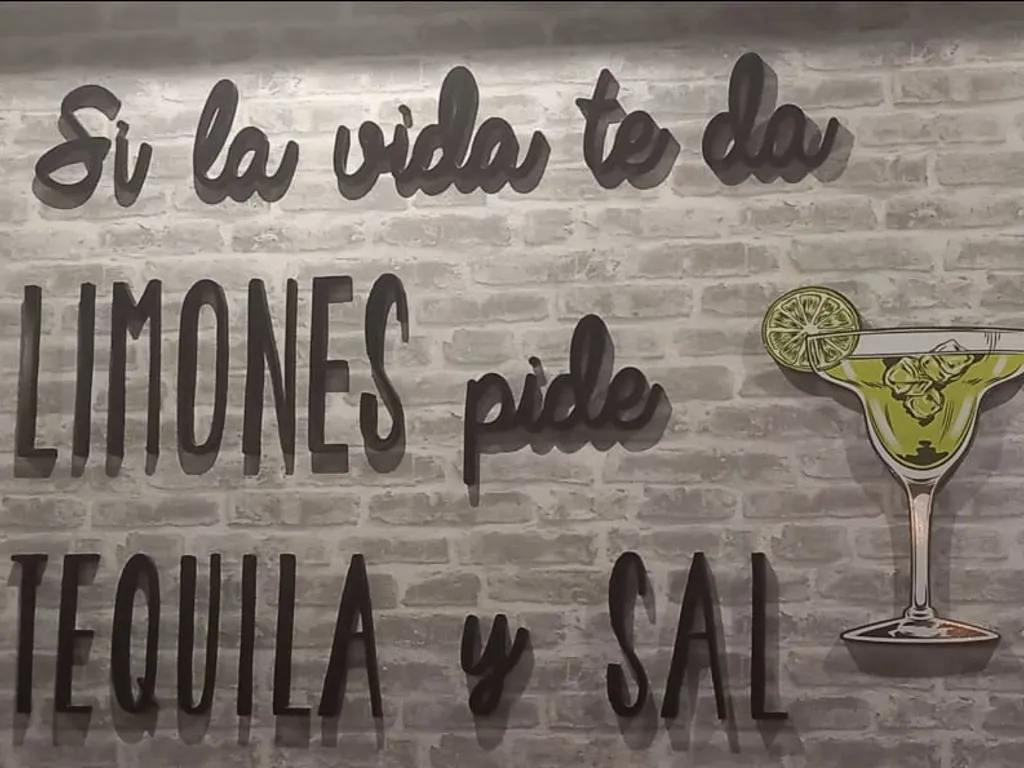 Si la vida te da
LIMONES pide
TEQUILA y SAL